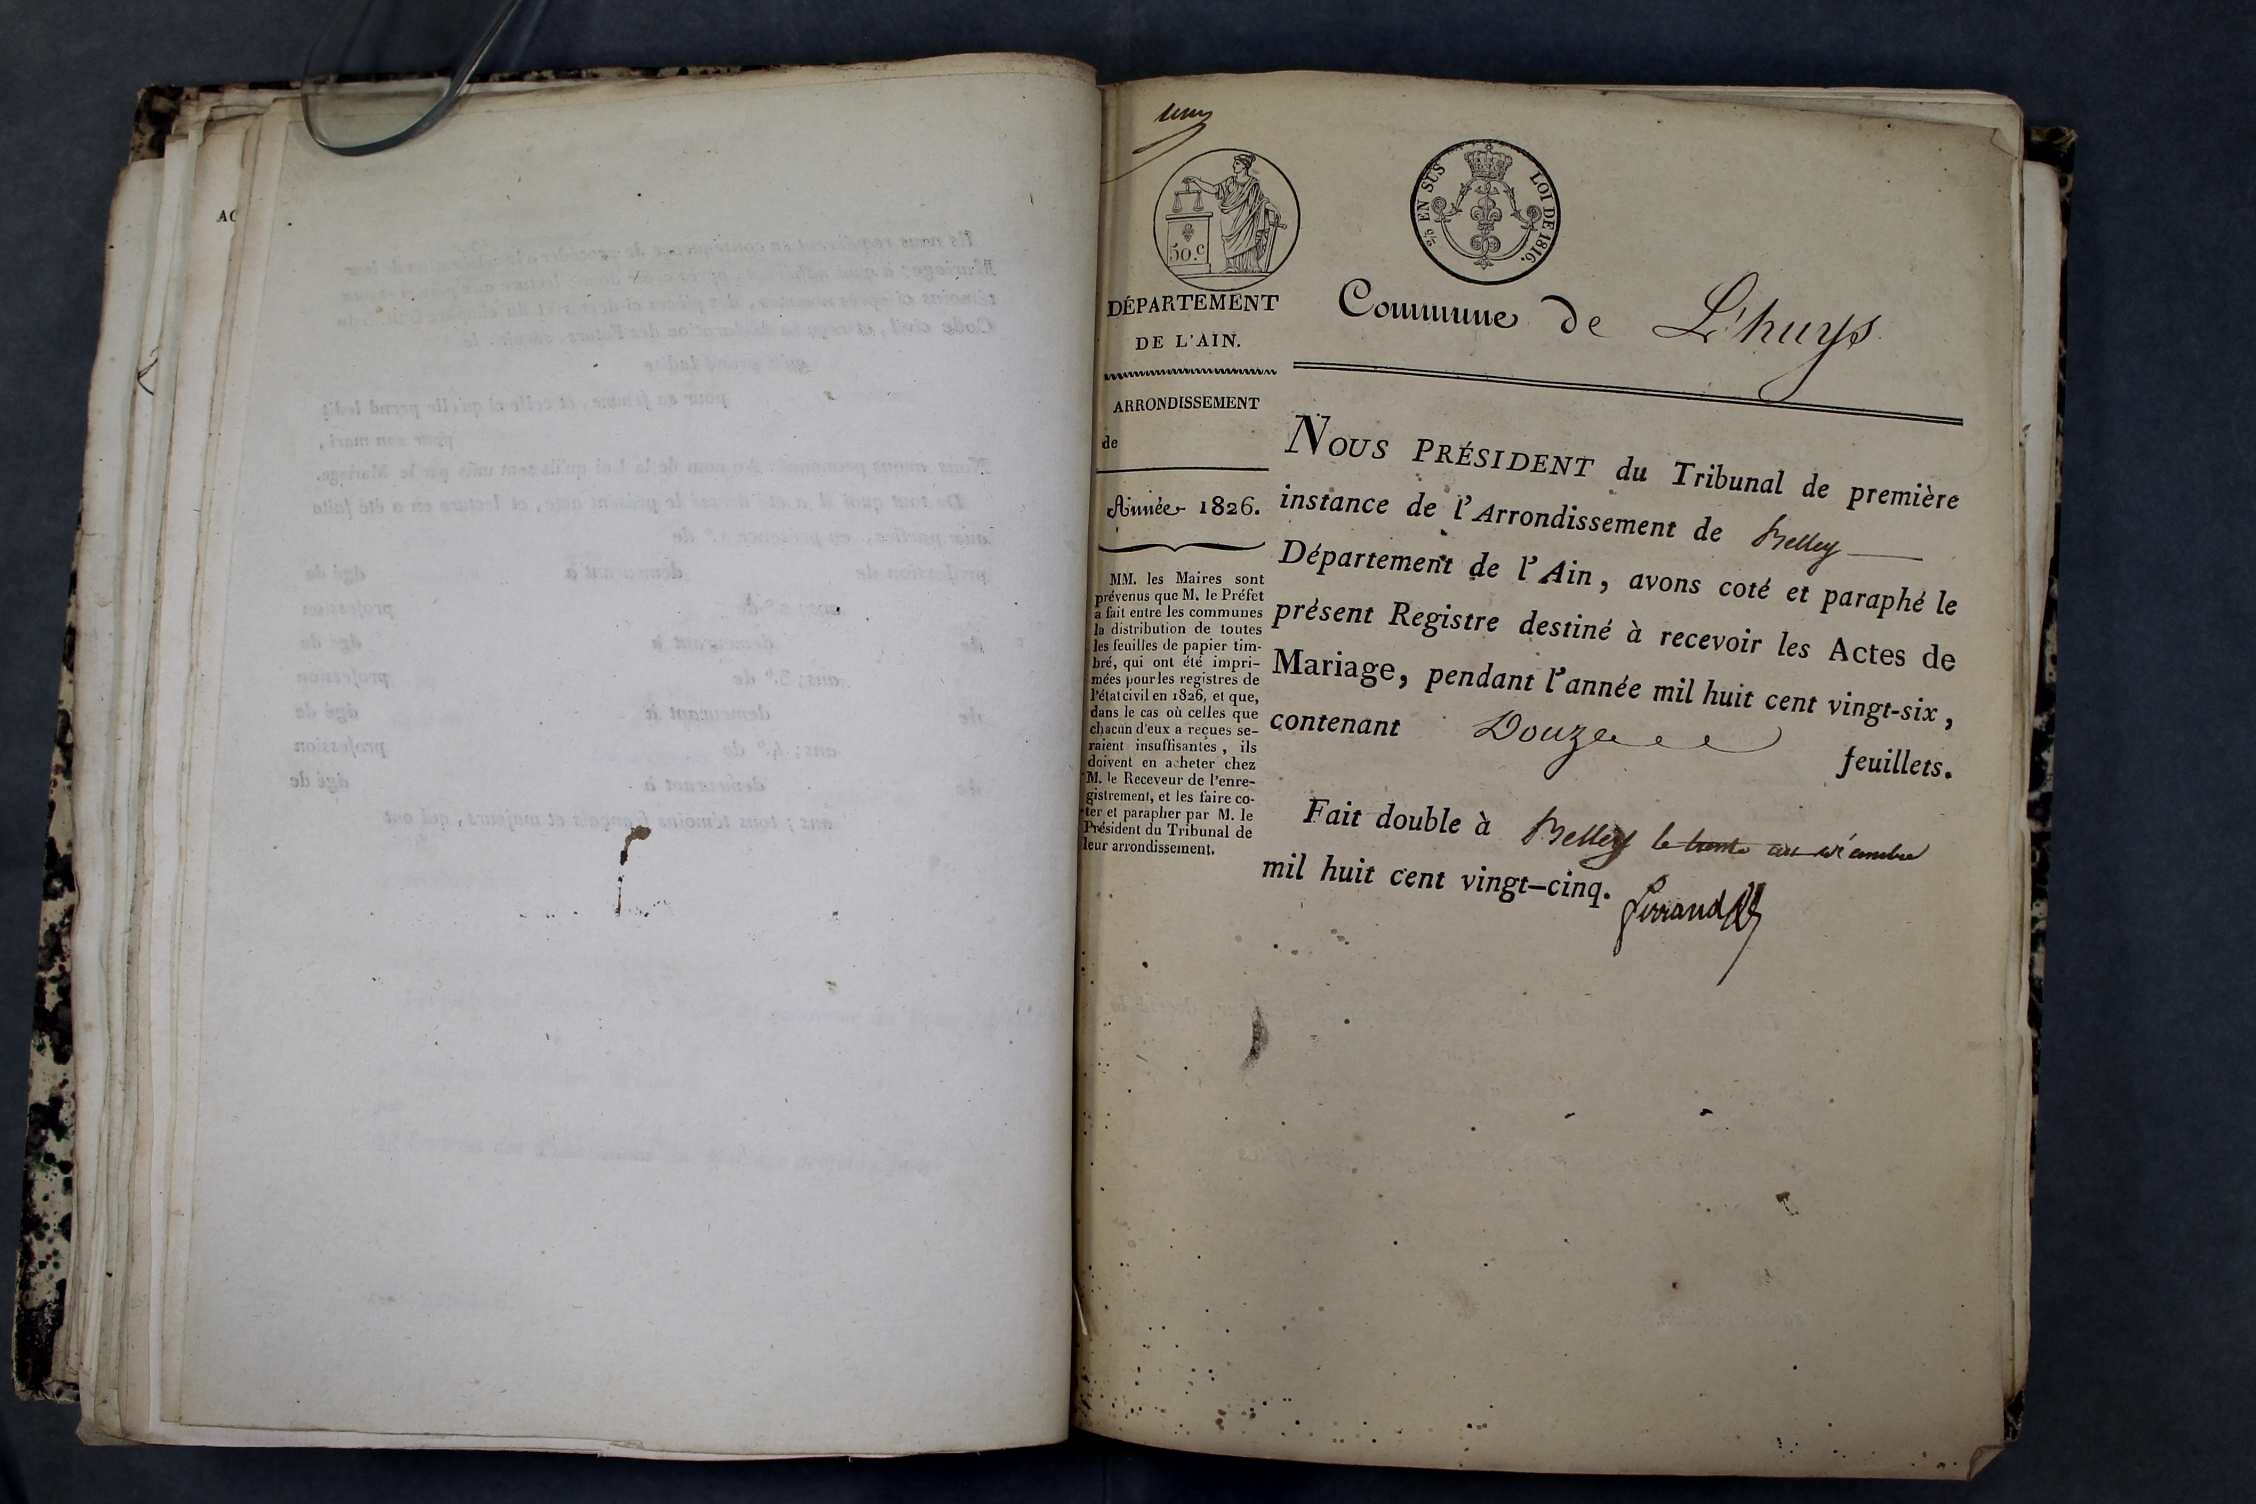 AC
50.c
2/5 EN SUS
LOI DE 1816.
DÉPARTEMENT
DE L'AIN.
ARRONDISSEMENT
de
Année 1826.
MM. les Maires sont
prévenus que M. le Préfet
a fait entre les communes
la distribution de toutes
les feuilles de papier tim-
bré, qui ont été impri-
mées pour les registres de
l'état civil en 1826, et que,
dans le cas où celles que
chacun d'eux a reçues se-
raient insuffisantes, ils
doivent en acheter chez
M. le Receveur de l'enre-
gistrement, et les faire co-
ter et parapher par M. le
Président du Tribunal de
leur arrondissement.
Commune de L'huys
NOUS PRÉSIDENT du Tribunal de première
instance de l'Arrondissement de Belley
Département de l'Ain, avons coté et paraphé le
présent Registre destiné à recevoir les Actes de
Mariage, pendant l'année mil huit cent vingt-six,
contenant Douze feuillets.
Fait double à Belley le trente
mil huit cent vingt-cinq.
Ferrand